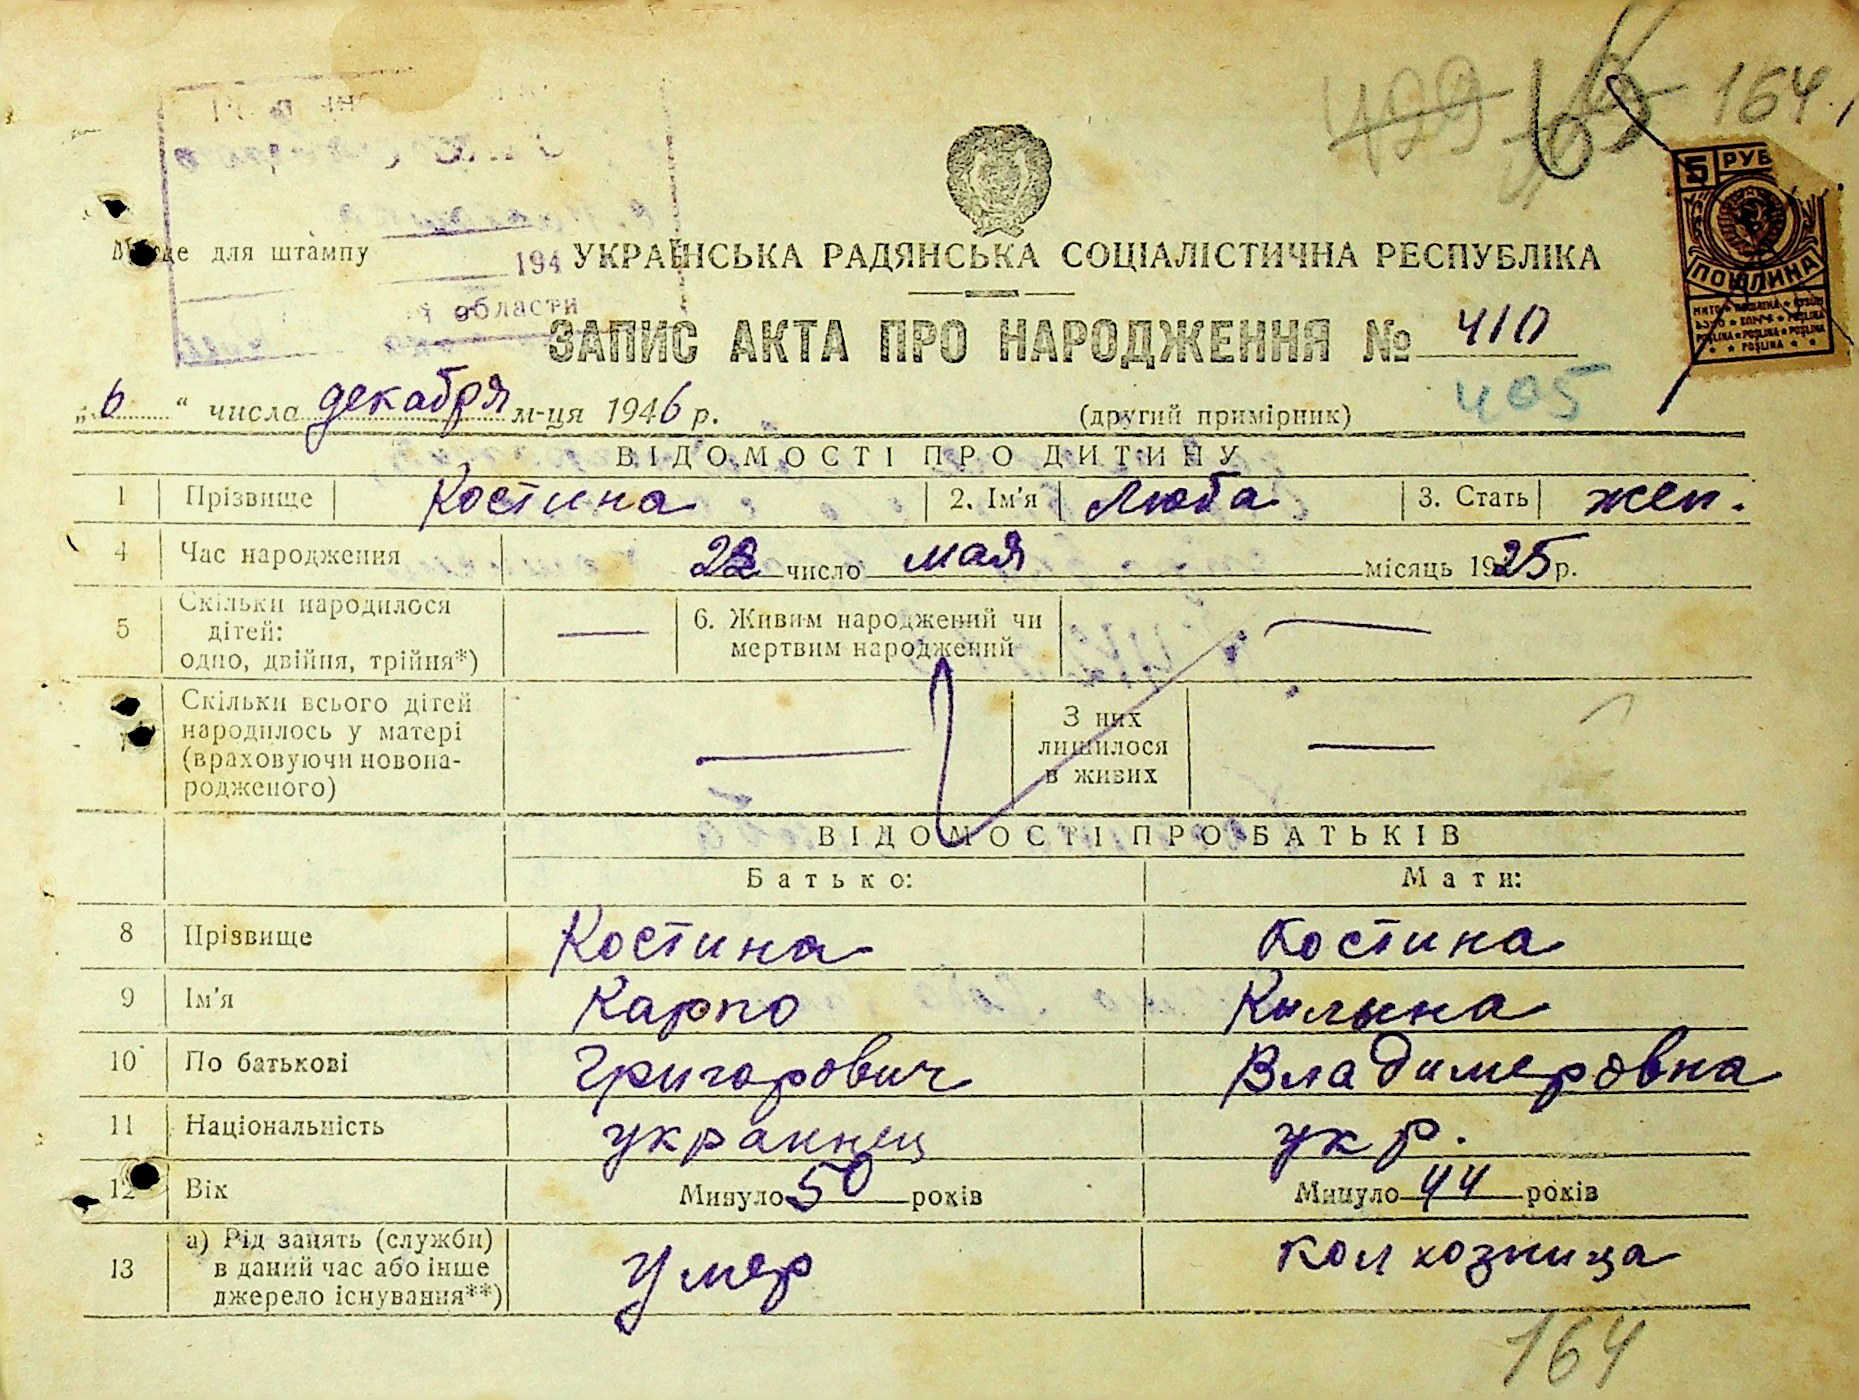 429 164
5 РУБ
ПОШЛИНА
Місце для штампу
194
області
УКРАЇНСЬКА РАДЯНСЬКА СОЦІАЛІСТИЧНА РЕСПУБЛІКА
ЗАПИС АКТА ПРО НАРОДЖЕННЯ № 410
„6“ числа декабря м-ця 1946 р. (другий примірник) 405
ВІДОМОСТІ ПРО ДИТИНУ
1 Прізвище Костина 2. Ім'я Люба 3. Стать жен.
4 Час народження 22 число мая місяць 1925 р.
5 Скільки народилося дітей: одно, двійня, трійня*) — 6. Живим народжений чи мертвим народжений —
Скільки всього дітей народилось у матері (враховуючи новона-родженого) — З них лишилося в живих —
ВІДОМОСТІ ПРО БАТЬКІВ
Батько: Мати:
8 Прізвище Костина Костина
9 Ім'я Карпо Килына
10 По батькові Григорович Владимеровна
11 Національність украинец укр.
12 Вік Минуло 50 років Минуло 44 років
13 а) Рід занять (служби) в даний час або інше джерело існування**) Умер колхозница
164